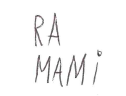 RA
MAMi